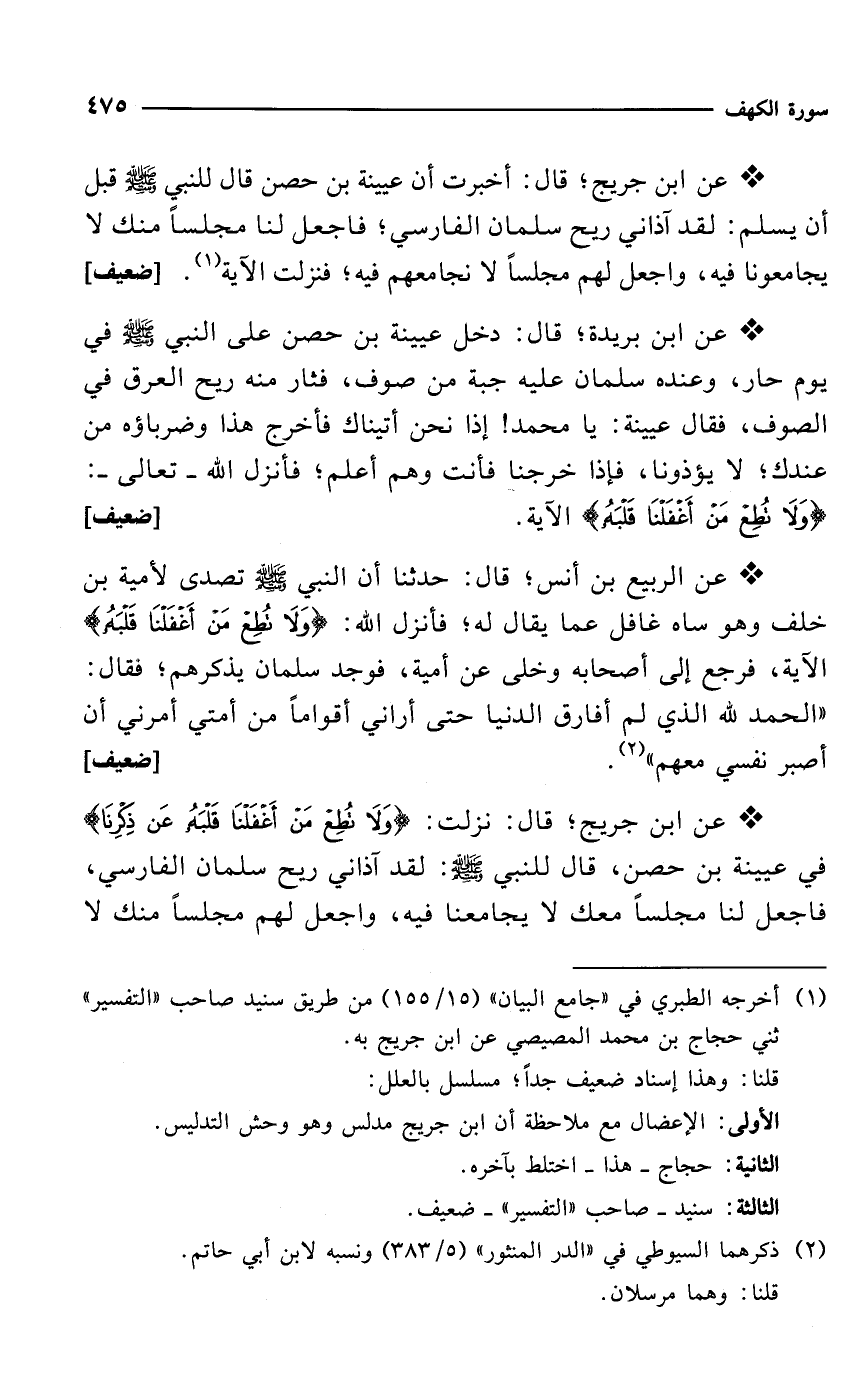 سورة الكهف ٤٧٥
❖ عن ابن جريج؛ قال: أخبرت أن عيينة بن حصن قال للنبي ﷺ قبل
أن يسلم: لقد آذاني ريح سلمان الفارسي؛ فاجعل لنا مجلساً منك لا
يجامعونا فيه، واجعل لهم مجلساً لا نجامعهم فيه؛ فنزلت الآية(١). [ضعيف]
❖ عن ابن بريدة؛ قال: دخل عيينة بن حصن على النبي ﷺ في
يوم حار، وعنده سلمان عليه جبة من صوف، فثار منه ريح العرق في
الصوف، فقال عيينة: يا محمد! إذا نحن أتيناك فأخرج هذا وضرباؤه من
عندك؛ لا يؤذونا، فإذا خرجنا فأنت وهم أعلم؛ فأنزل الله ـ تعالى ـ:
﴿وَلَا نُطِعْ مَنْ أَغْفَلْنَا قَلْبَهُ﴾ الآية. [ضعيف]
❖ عن الربيع بن أنس؛ قال: حدثنا أن النبي ﷺ تصدى لأمية بن
خلف وهو ساه غافل عما يقال له؛ فأنزل الله: ﴿وَلَا نُطِعْ مَنْ أَغْفَلْنَا قَلْبَهُ﴾
الآية، فرجع إلى أصحابه وخلى عن أمية، فوجد سلمان يذكرهم؛ فقال:
«الحمد لله الذي لم أفارق الدنيا حتى أراني أقواماً من أمتي أمرني أن
أصبر نفسي معهم»(٢). [ضعيف]
❖ عن ابن جريج؛ قال: نزلت: ﴿وَلَا نُطِعْ مَنْ أَغْفَلْنَا قَلْبَهُ عَن ذِكْرِنَا﴾
في عيينة بن حصن، قال للنبي ﷺ: لقد آذاني ريح سلمان الفارسي،
فاجعل لنا مجلساً معك لا يجامعنا فيه، واجعل لهم مجلساً منك لا
(١) أخرجه الطبري في «جامع البيان» (١٥/ ١٥٥) من طريق سنيد صاحب «التفسير»
ثني حجاج بن محمد المصيصي عن ابن جريج به.
قلنا: وهذا إسناد ضعيف جداً؛ مسلسل بالعلل:
الأولى: الإعضال مع ملاحظة أن ابن جريج مدلس وهو وحش التدليس.
الثانية: حجاج ـ هذا ـ اختلط بآخره.
الثالثة: سنيد ـ صاحب «التفسير» ـ ضعيف.
(٢) ذكرهما السيوطي في «الدر المنثور» (٥/ ٣٨٣) ونسبه لابن أبي حاتم.
قلنا: وهما مرسلان.